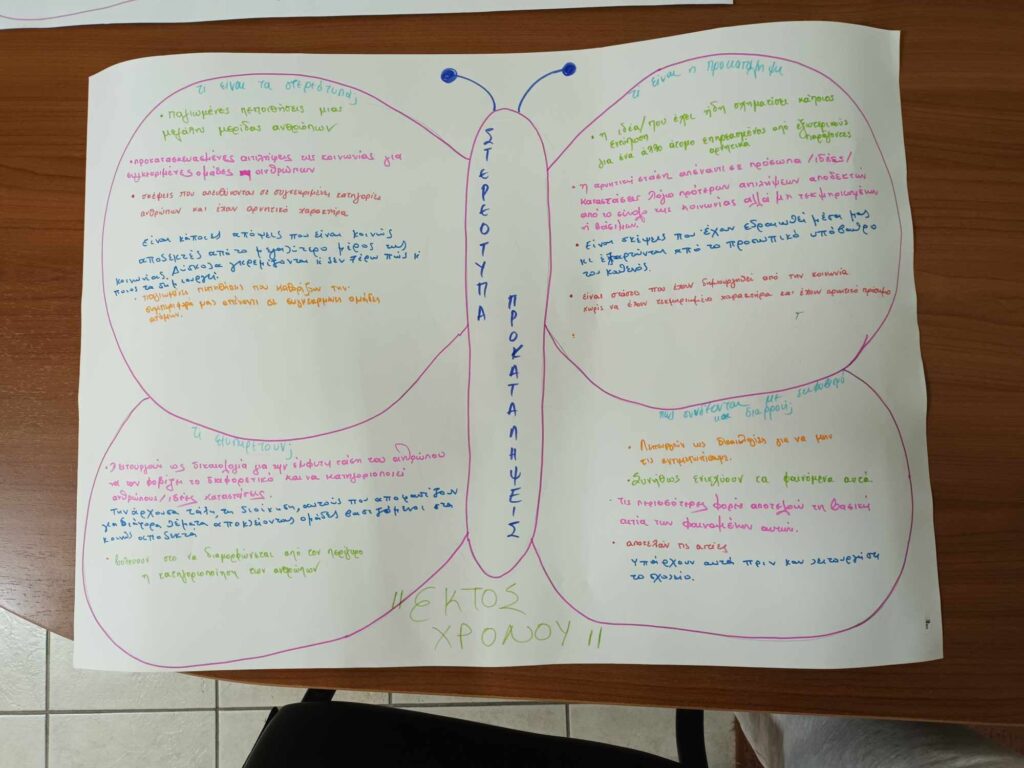 τι είναι τα στερεότυπα;
• παγιωμένες πεποιθήσεις μιας
μεγάλης μερίδας ανθρώπων
• προκατασκευασμένες αντιλήψεις ως κοινωνίας για
συγκεκριμένες ομάδες ανθρώπων
• σκέψεις που απευθύνονται σε συγκεκριμένες κατηγορίες
ανθρώπων και έχουν αρνητικό χαρακτήρα
Είναι κάποιες απόψεις που είναι κοινώς
αποδεκτές από το μεγαλύτερο μέρος της
κοινωνίας. Δύσκολα γκρεμίζονται κ δεν ξέρω πώς κ
ποιος τα δημιουργεί.
• παγιωμένες πεποιθήσεις που καθορίζουν την
συμπεριφορά μας απέναντι σε συγκεκριμένες ομάδες
ατόμων.
τι είναι η προκατάληψη
• η ιδέα/που έχει ήδη σχηματίσει κάποιος
εντύπωση
για ένα άλλο άτομο επηρεασμένος από εξωτερικούς
αρνητικά παράγοντες
• η αρνητική στάση απέναντι σε πρόσωπα/ιδέες/
καταστάσεις λόγω πρότερων αντιλήψεων αποδεκτών
από το σύνολο της κοινωνίας αλλά μη τεκμηριωμένων
ή βάσιμων.
• Είναι σκέψεις που έχουν εδραιωθεί μέσα μας
κι εξαρτώνται από το προσωπικό υπόβαθρο
του καθενός.
• είναι στάσεις που έχουν δημιουργηθεί από την κοινωνία
χωρίς να έχουν τεκμηριωμένο χαρακτήρα και έχουν αρνητικό πρόσημο
ΣΤΕΡΕΟΤΥΠΑ
ΠΡΟΚΑΤΑΛΗΨΕΙΣ
τι εξυπηρετούν;
• Λειτουργούν ως δικαιολογία για την έμφυτη τάση του ανθρώπου
να τον φοβίζει το διαφορετικό και να κατηγοριοποιεί
ανθρώπους/ιδέες καταστάσεις.
Την άρχουσα τάξη, τη διοίκηση, αυτούς που αποφασίζουν
για διάφορα θέματα αποκλείοντας ομάδες βασιζόμενοι στα
κοινώς αποδεκτά
• βοηθούν στο να διαμορφώνεται από τον περίγυρο
η κατηγοριοποίηση των ανθρώπων
πως συνδέονται με εκφοβισμό
και διαρροή;
• Λειτουργούν ως δικαιολογίες για να μην
τις αντιμετωπίσουμε.
• Συνήθως ενισχύουν τα φαινόμενα αυτά.
• Τις περισσότερες φορές αποτελούν τη βασική
αιτία των φαινομένων αυτών.
• αποτελούν τις αιτίες
Υπάρχουν αυτά πριν καν λειτουργήσει
το σχολείο.
"ΕΚΤΟΣ
ΧΡΟΝΟΥ"